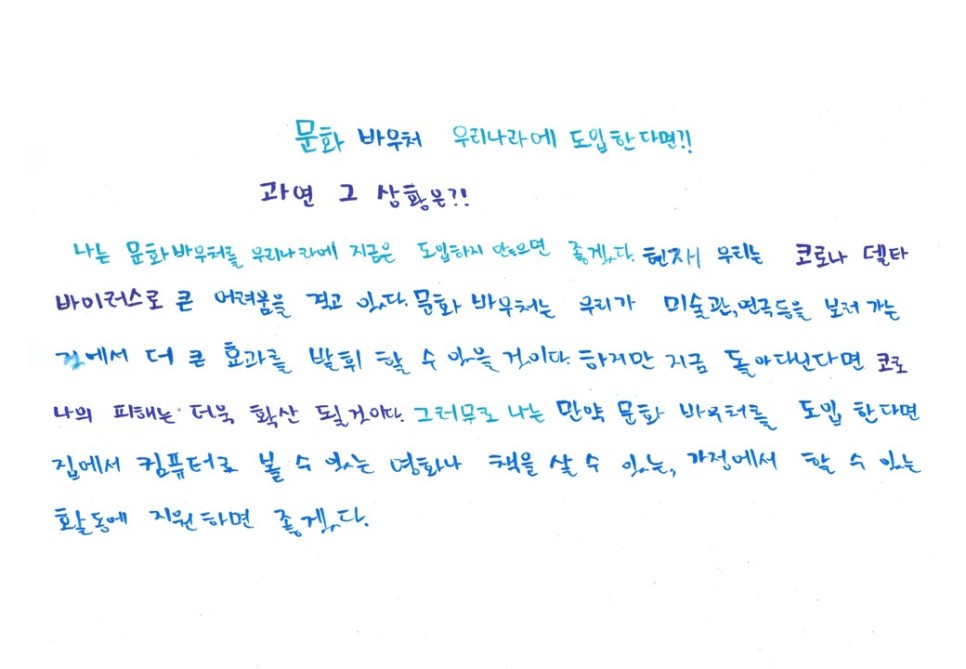 문화 바우처 우리나라에 도입한다면?!
과연 그 상황은?!
나는 문화바우처를 우리나라에 지금은 도입하지 안았으면 좋겠다. 현재 우리는 코로나 델타
바이러스로 큰 어려움을 겪고 있다. 문화 바우처는 우리가 미술관, 연극등을 보러 가는
것에서 더 큰 효과를 발휘 할 수 있을 것이다. 하지만 지금 돌아다닌다면 코로
나의 피해는 더욱 확산 될것이다. 그러무로 나는 만약 문화 바우처를 도입 한다면
집에서 컴퓨터로 볼 수 있는 영화나 책을 살 수 있는, 가정에서 할 수 있는
활동에 지원하면 좋겠다.